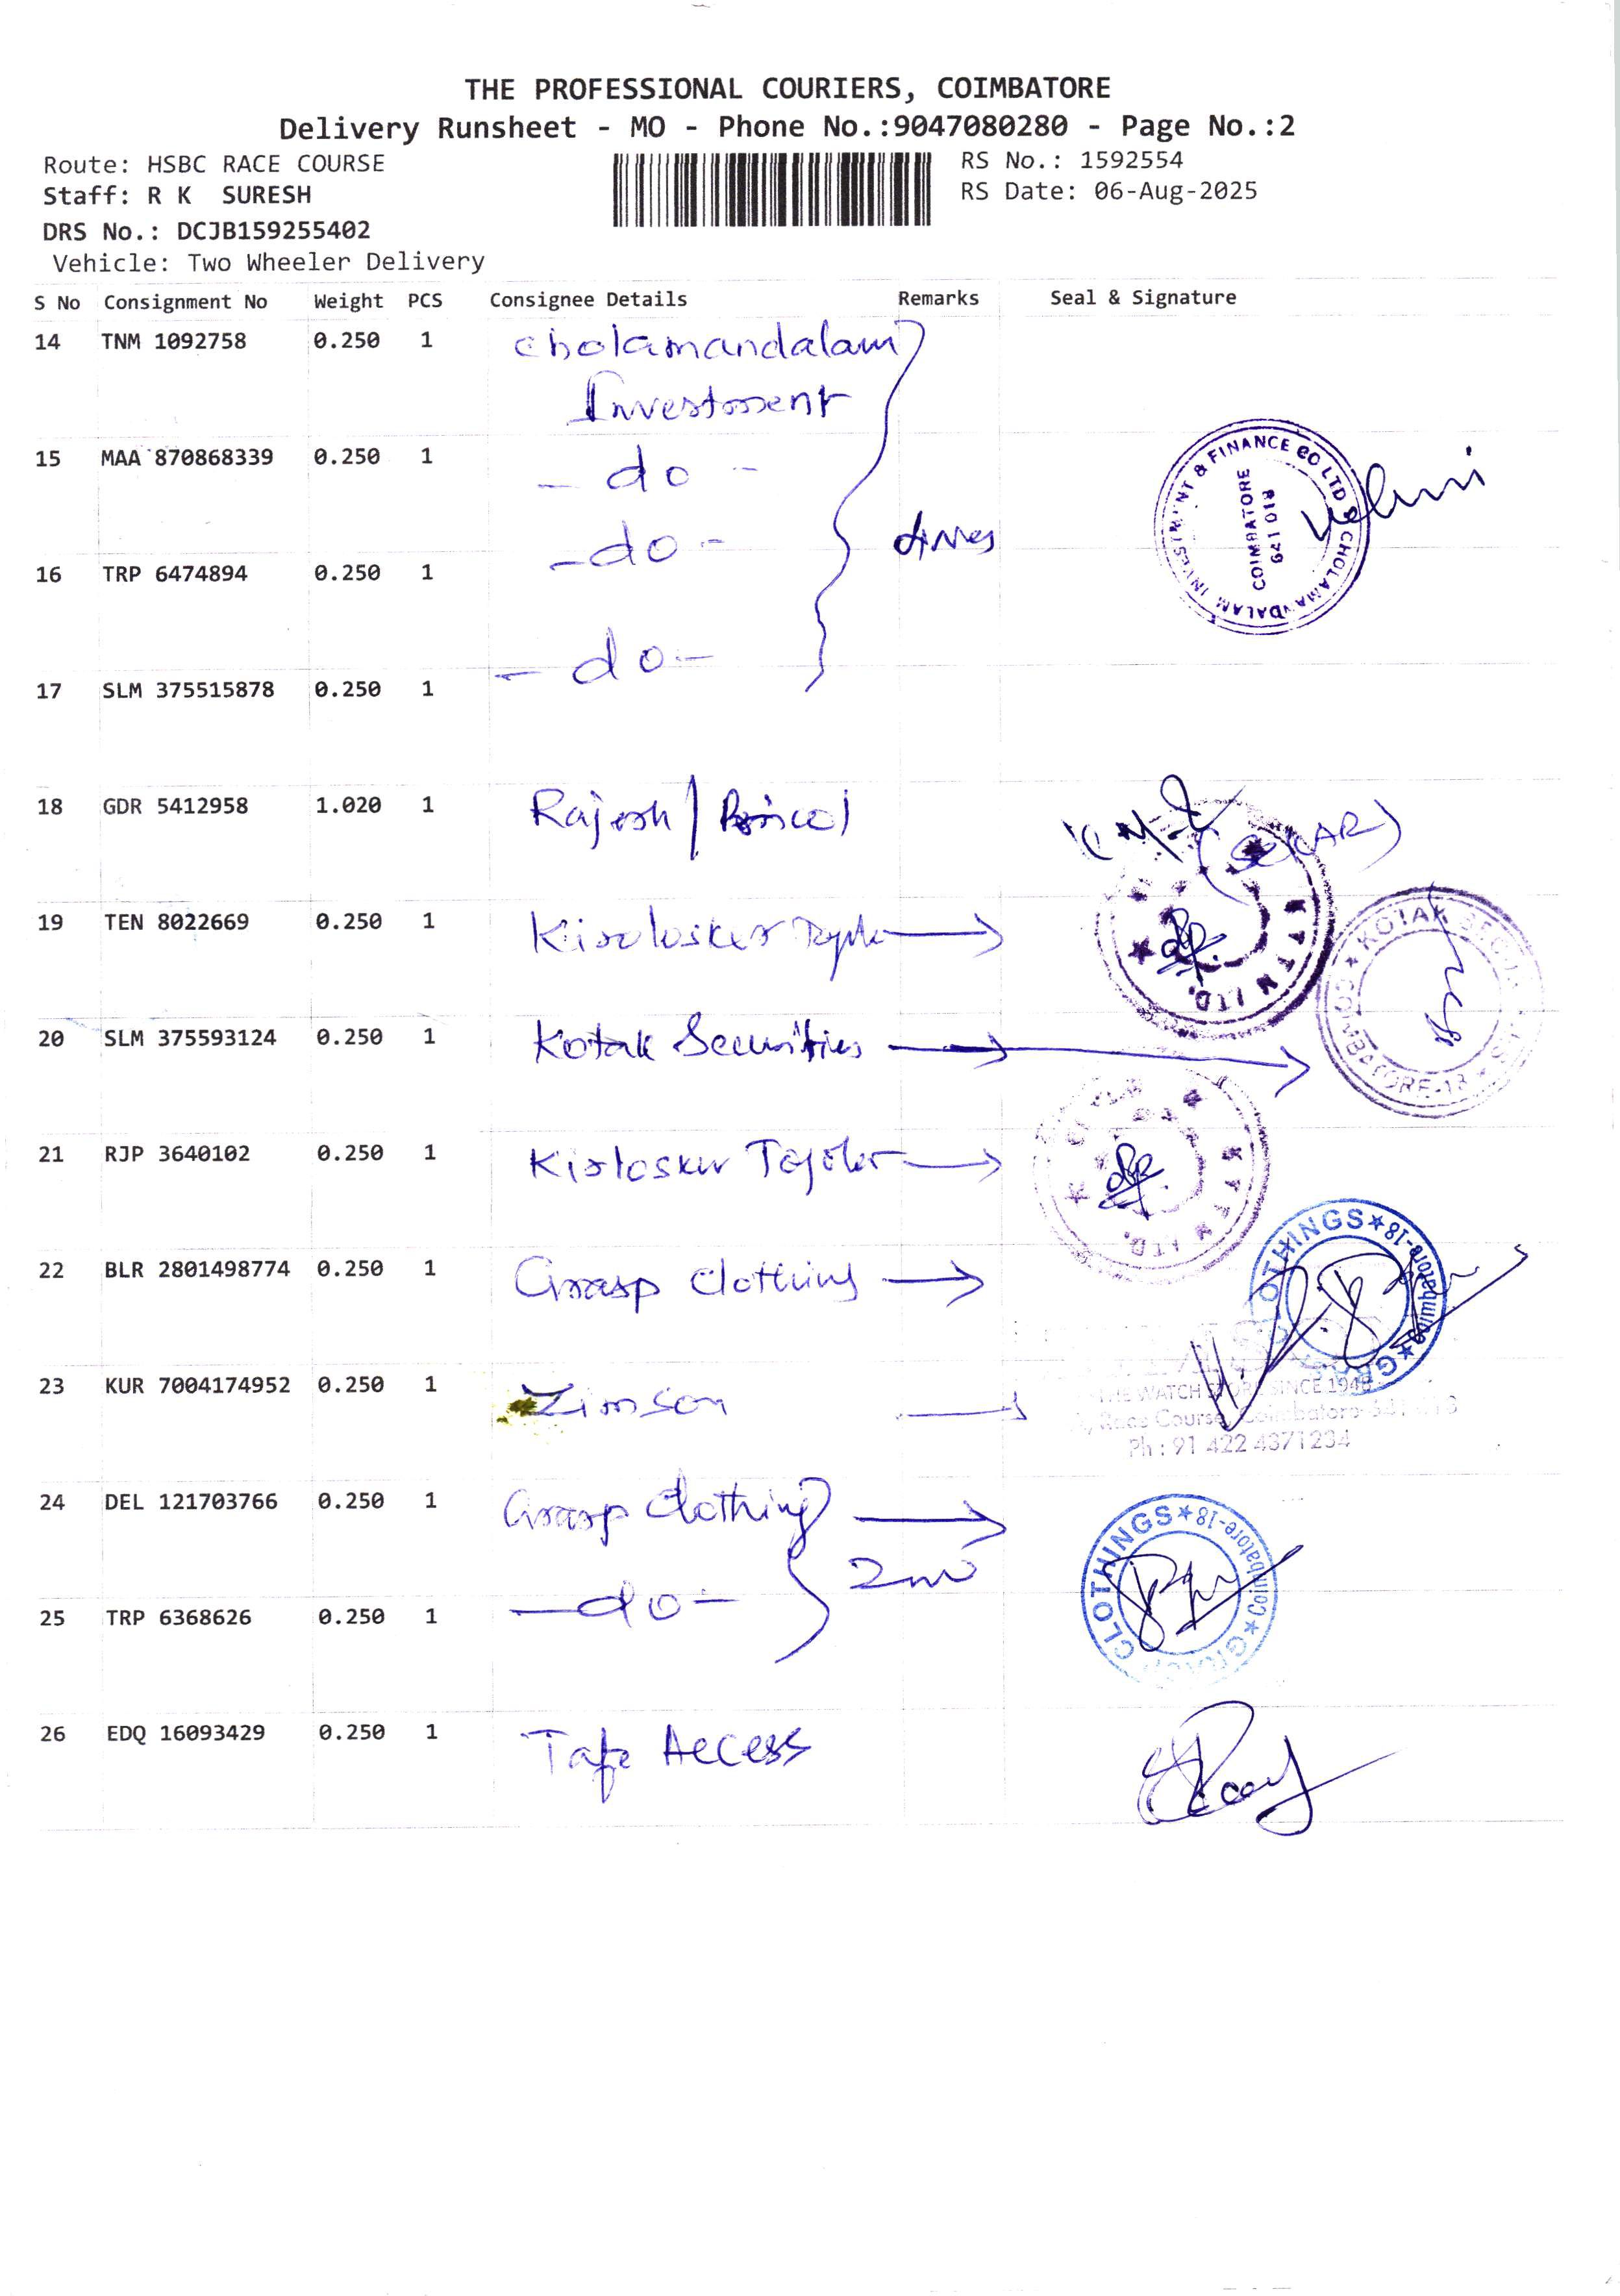 THE PROFESSIONAL COURIERS, COIMBATORE
Delivery Runsheet - MO - Phone No.:9047080280 - Page No.:2
Route: HSBC RACE COURSE
RS No.: 1592554
Staff: R K SURESH
RS Date: 06-Aug-2025
DRS No.: DCJB159255402
Vehicle: Two Wheeler Delivery
S No Consignment No Weight PCS Consignee Details Remarks Seal & Signature
14 TNM 1092758 0.250 1 cholamandalam
Investment
15 MAA 870868339 0.250 1 - do -
- do -
16 TRP 6474894 0.250 1
- do -
17 SLM 375515878 0.250 1
CHOLAMANDALAM INVESTMENT & FINANCE CO LTD
COIMBATORE
641 018
18 GDR 5412958 1.020 1 Rajesh /
19 TEN 8022669 0.250 1 Kirolosker
LTD.
20 SLM 375593124 0.250 1 Kotak Securities
KOTAK
COIMBATORE-18
21 RJP 3640102 0.250 1 Kirlosker
LTD.
22 BLR 2801498774 0.250 1 Grasp Clothing
CLOTHINGS ★ Coimbatore-18 ★
23 KUR 7004174952 0.250 1 Zimson
THE WATCH STORE SINCE 1948
Race Course, Coimbatore-641 018
Ph : 91 422 4371234
24 DEL 121703766 0.250 1 Grasp Clothing
CLOTHINGS ★ Coimbatore-18 ★
25 TRP 6368626 0.250 1 - do -
26 EDQ 16093429 0.250 1 Tafe Access